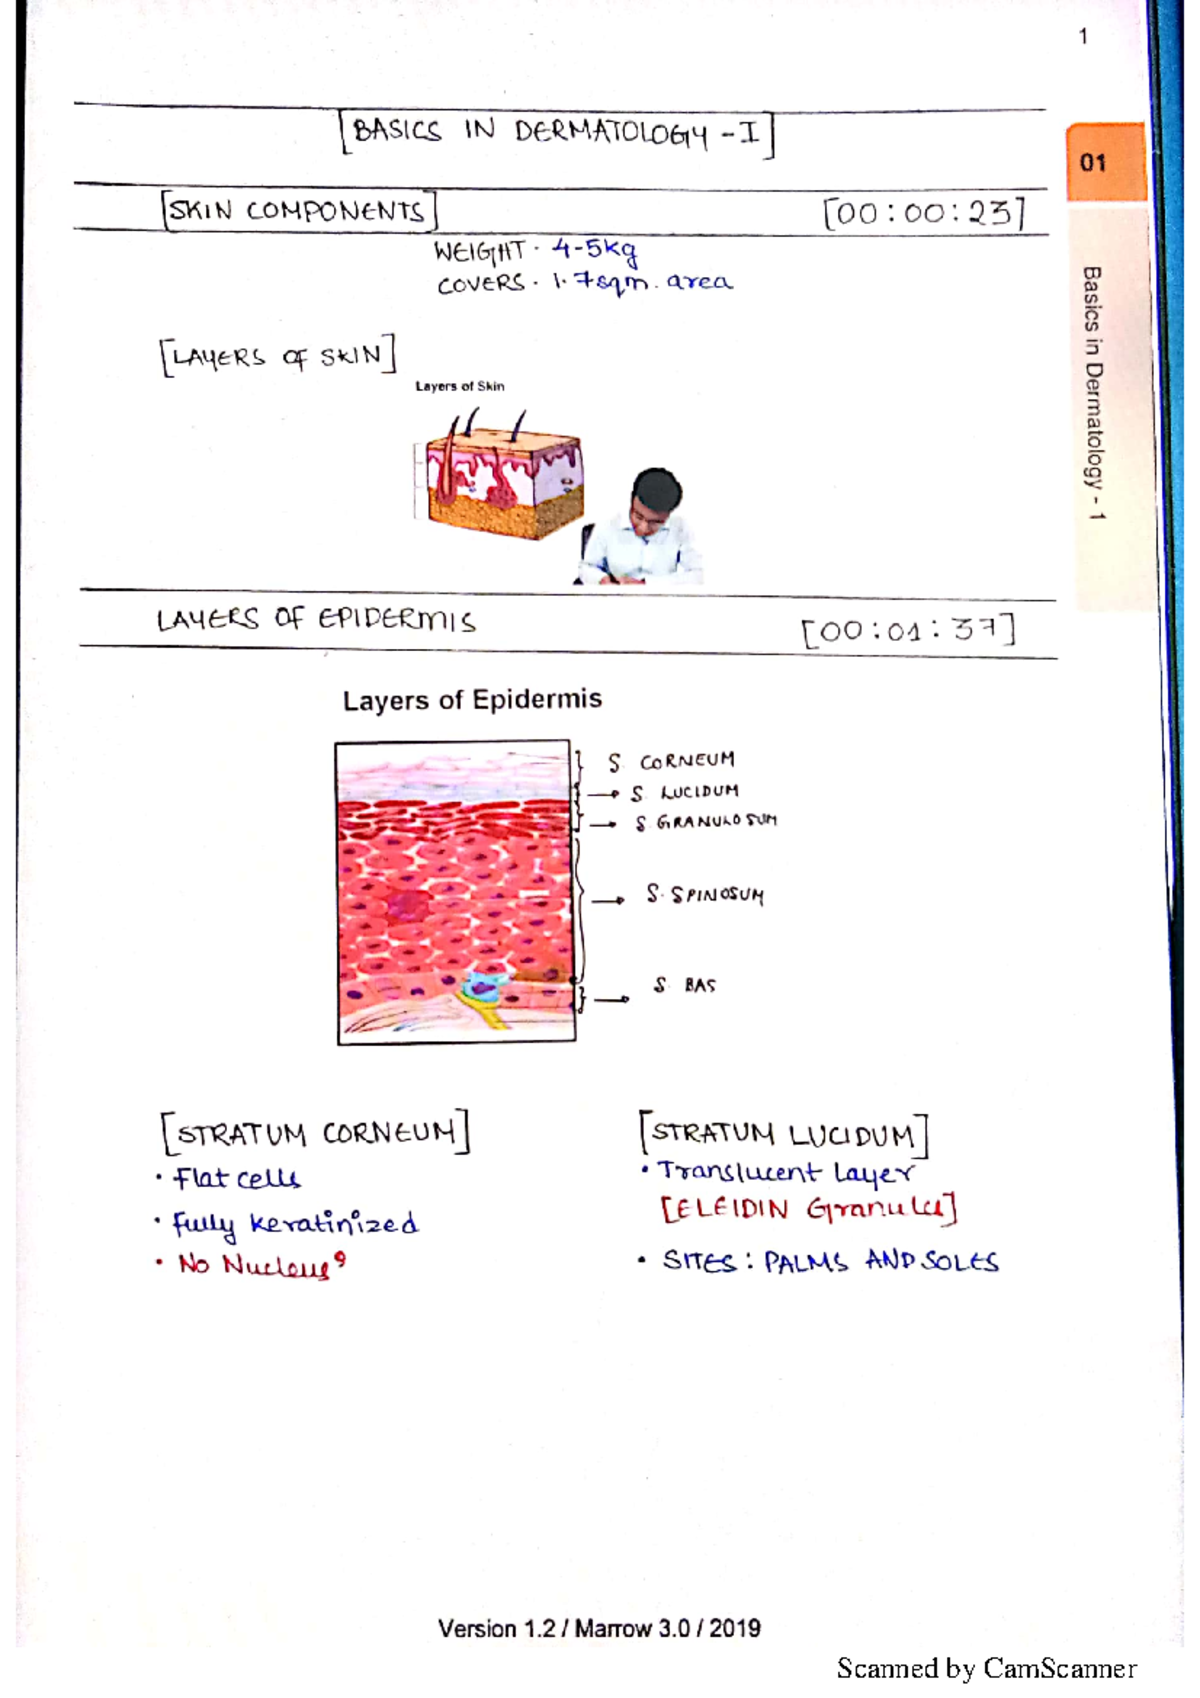 1
[BASICS IN DERMATOLOGY - I]
01
[SKIN COMPONENTS] [00:00:23]
WEIGHT · 4-5kg
COVERS · 1.7sqm. area
Basics in Dermatology - 1
[LAYERS OF SKIN]
Layers of Skin
LAYERS OF EPIDERMIS [00:01:37]
Layers of Epidermis
S. CORNEUM
S. LUCIDUM
S. GRANULOSUM
S. SPINOSUM
S. BAS
[STRATUM CORNEUM]
· Flat cells
· Fully keratinized
· No Nucleus
[STRATUM LUCIDUM]
· Translucent Layer
[ELEIDIN Granules]
· SITES : PALMS AND SOLES
Version 1.2 / Marrow 3.0 / 2019
Scanned by CamScanner